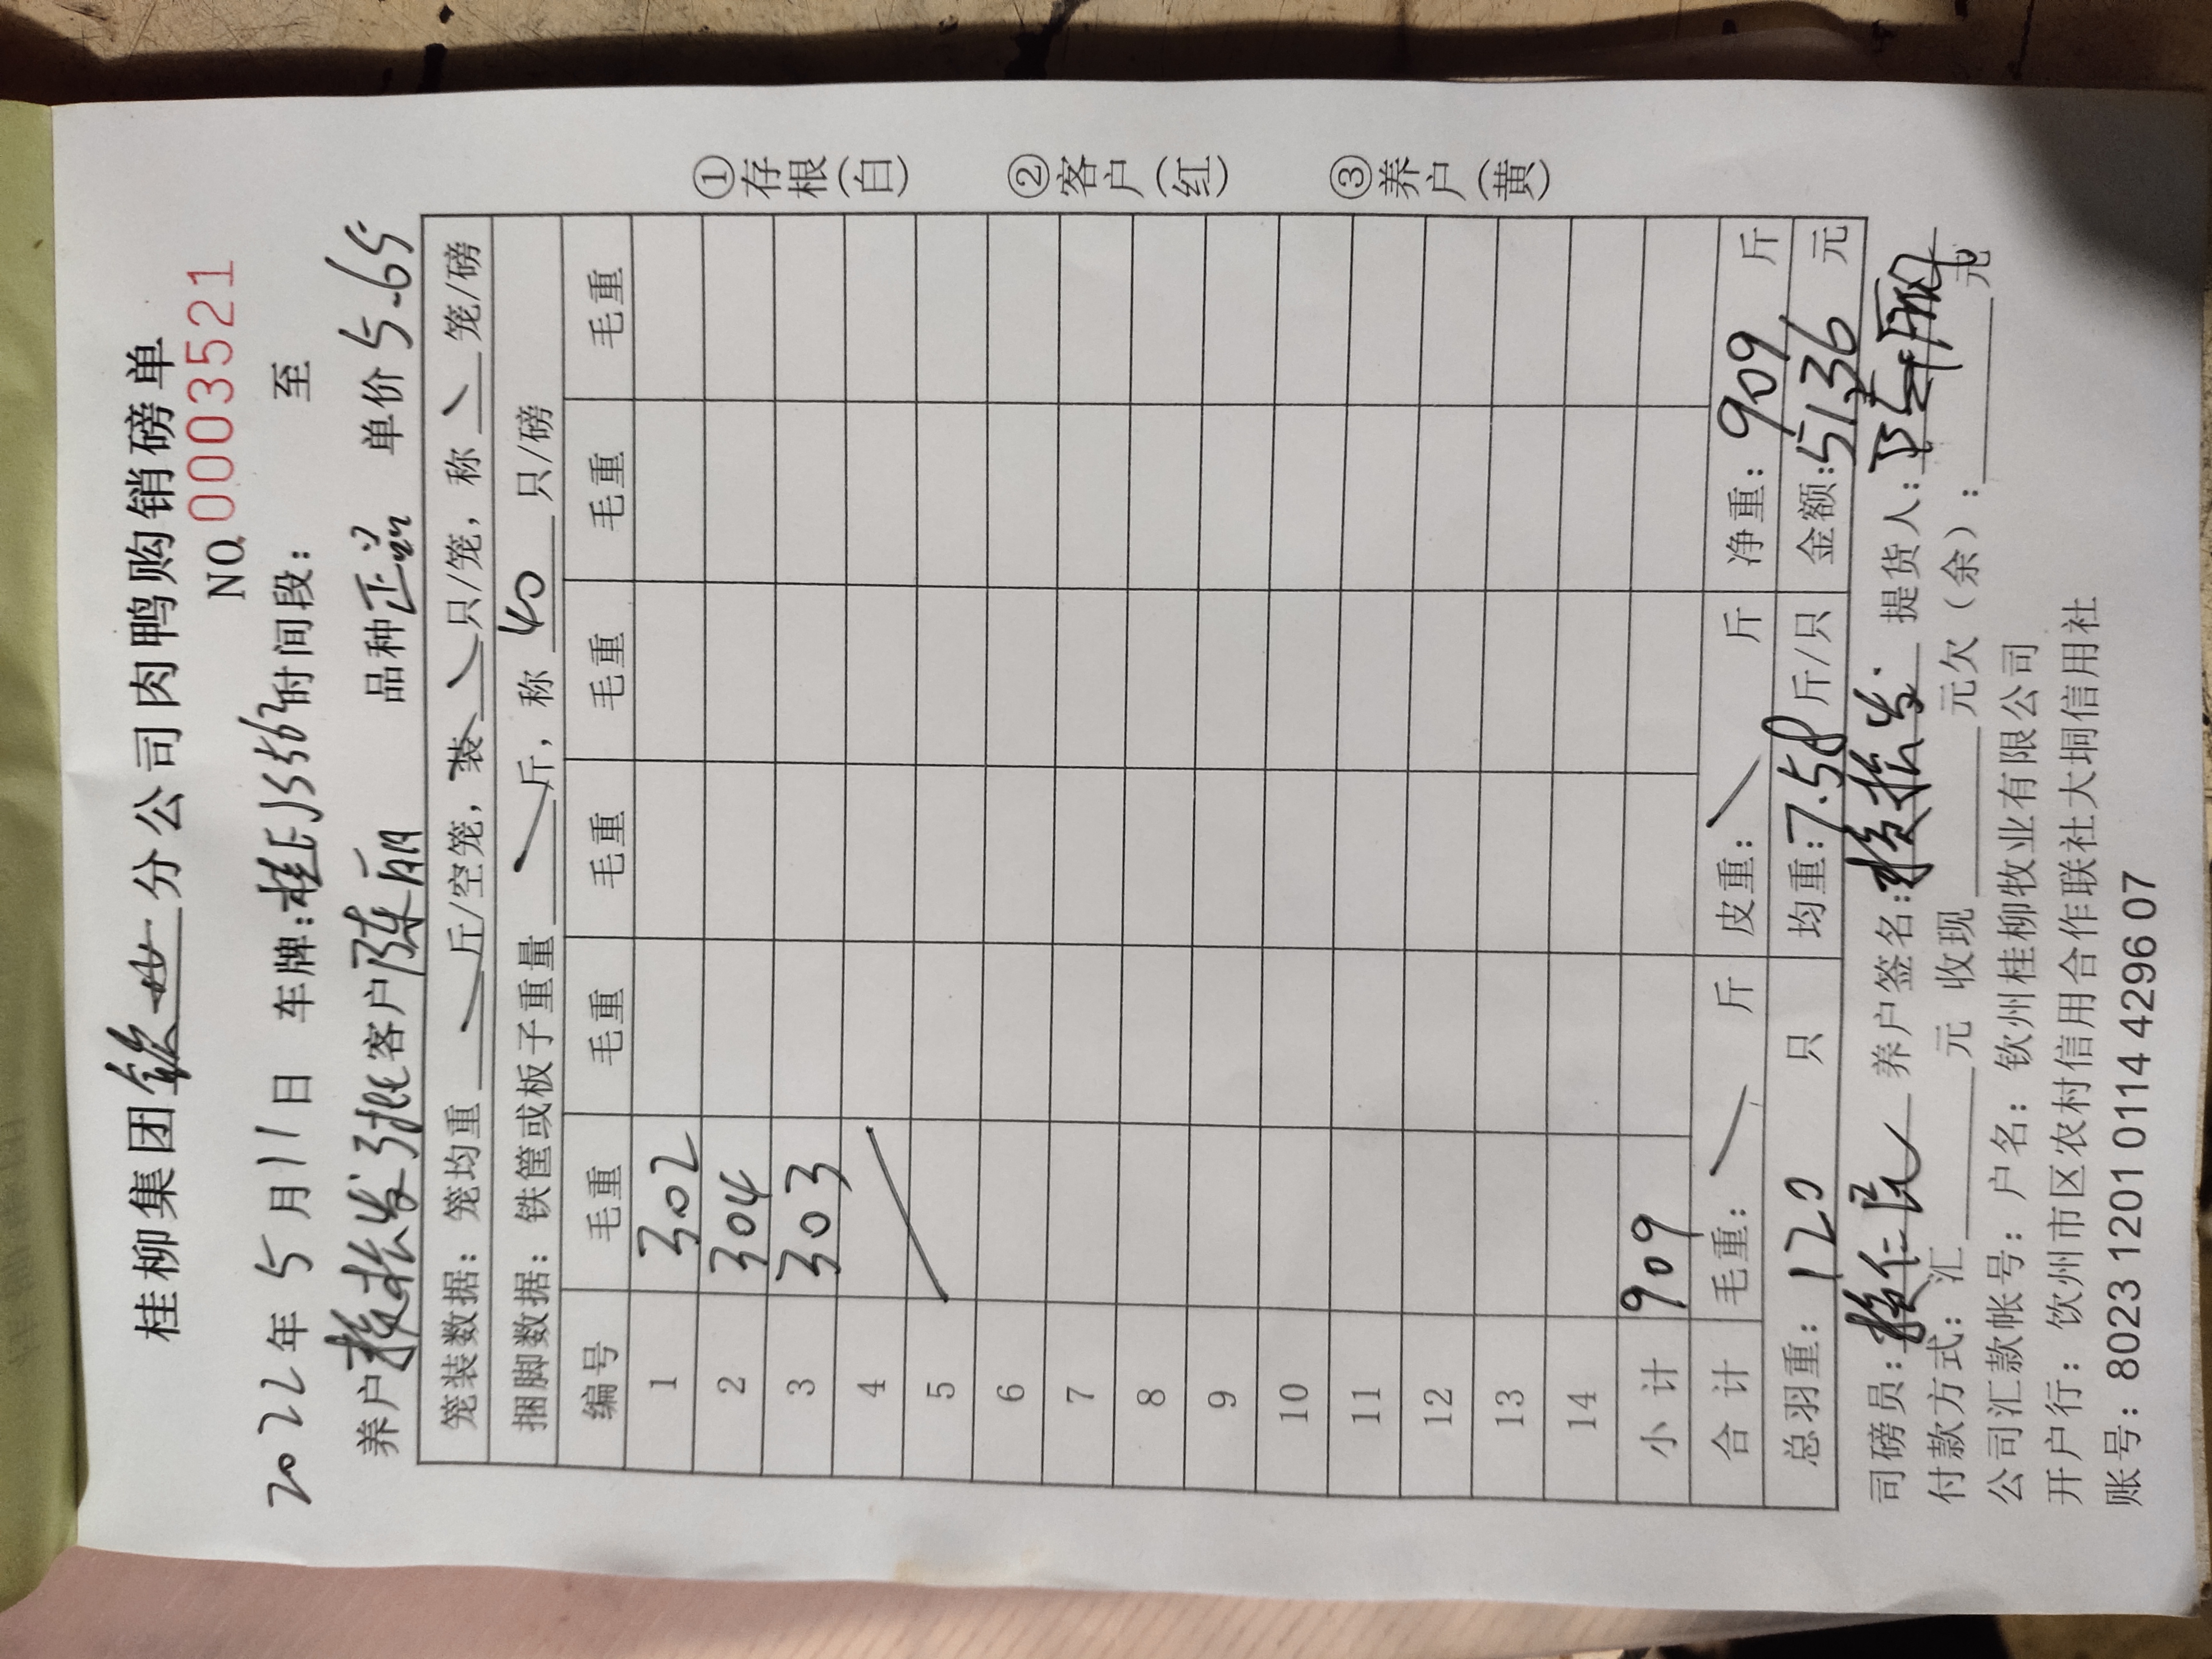 桂柳集团钦州分公司肉鸭购销磅单
NO.0003521
2022年5月11日 车牌:桂 J5562时间段: 至
养户 振发 客户陈丽 品种正品 单价5.65
笼装数据:笼均重 斤/空笼,装 只/笼,称 笼/磅
捆脚数据:铁筐或板子重量 斤,称 40 只/磅
编号 毛重 毛重 毛重 毛重 毛重 毛重
1 302
2 304
3 303
4
5
6
7
8
9
10
11
12
13
14
小计 909
合计 毛重: 斤 皮重: 斤 净重:909 斤
总羽重:120 只 均重:7.58斤/只 金额:5136 元
司磅员: 养户签名: 提货人:陈丽
付款方式:汇 元 收现 元欠(余): 元
公司汇款帐号:户名:钦州桂柳牧业有限公司
开户行:饮州市区农村信用合作联社大垌信用社
账号:8023 1201 0114 4296 07
①存根(白) ②客户(红) ③养户(黄)